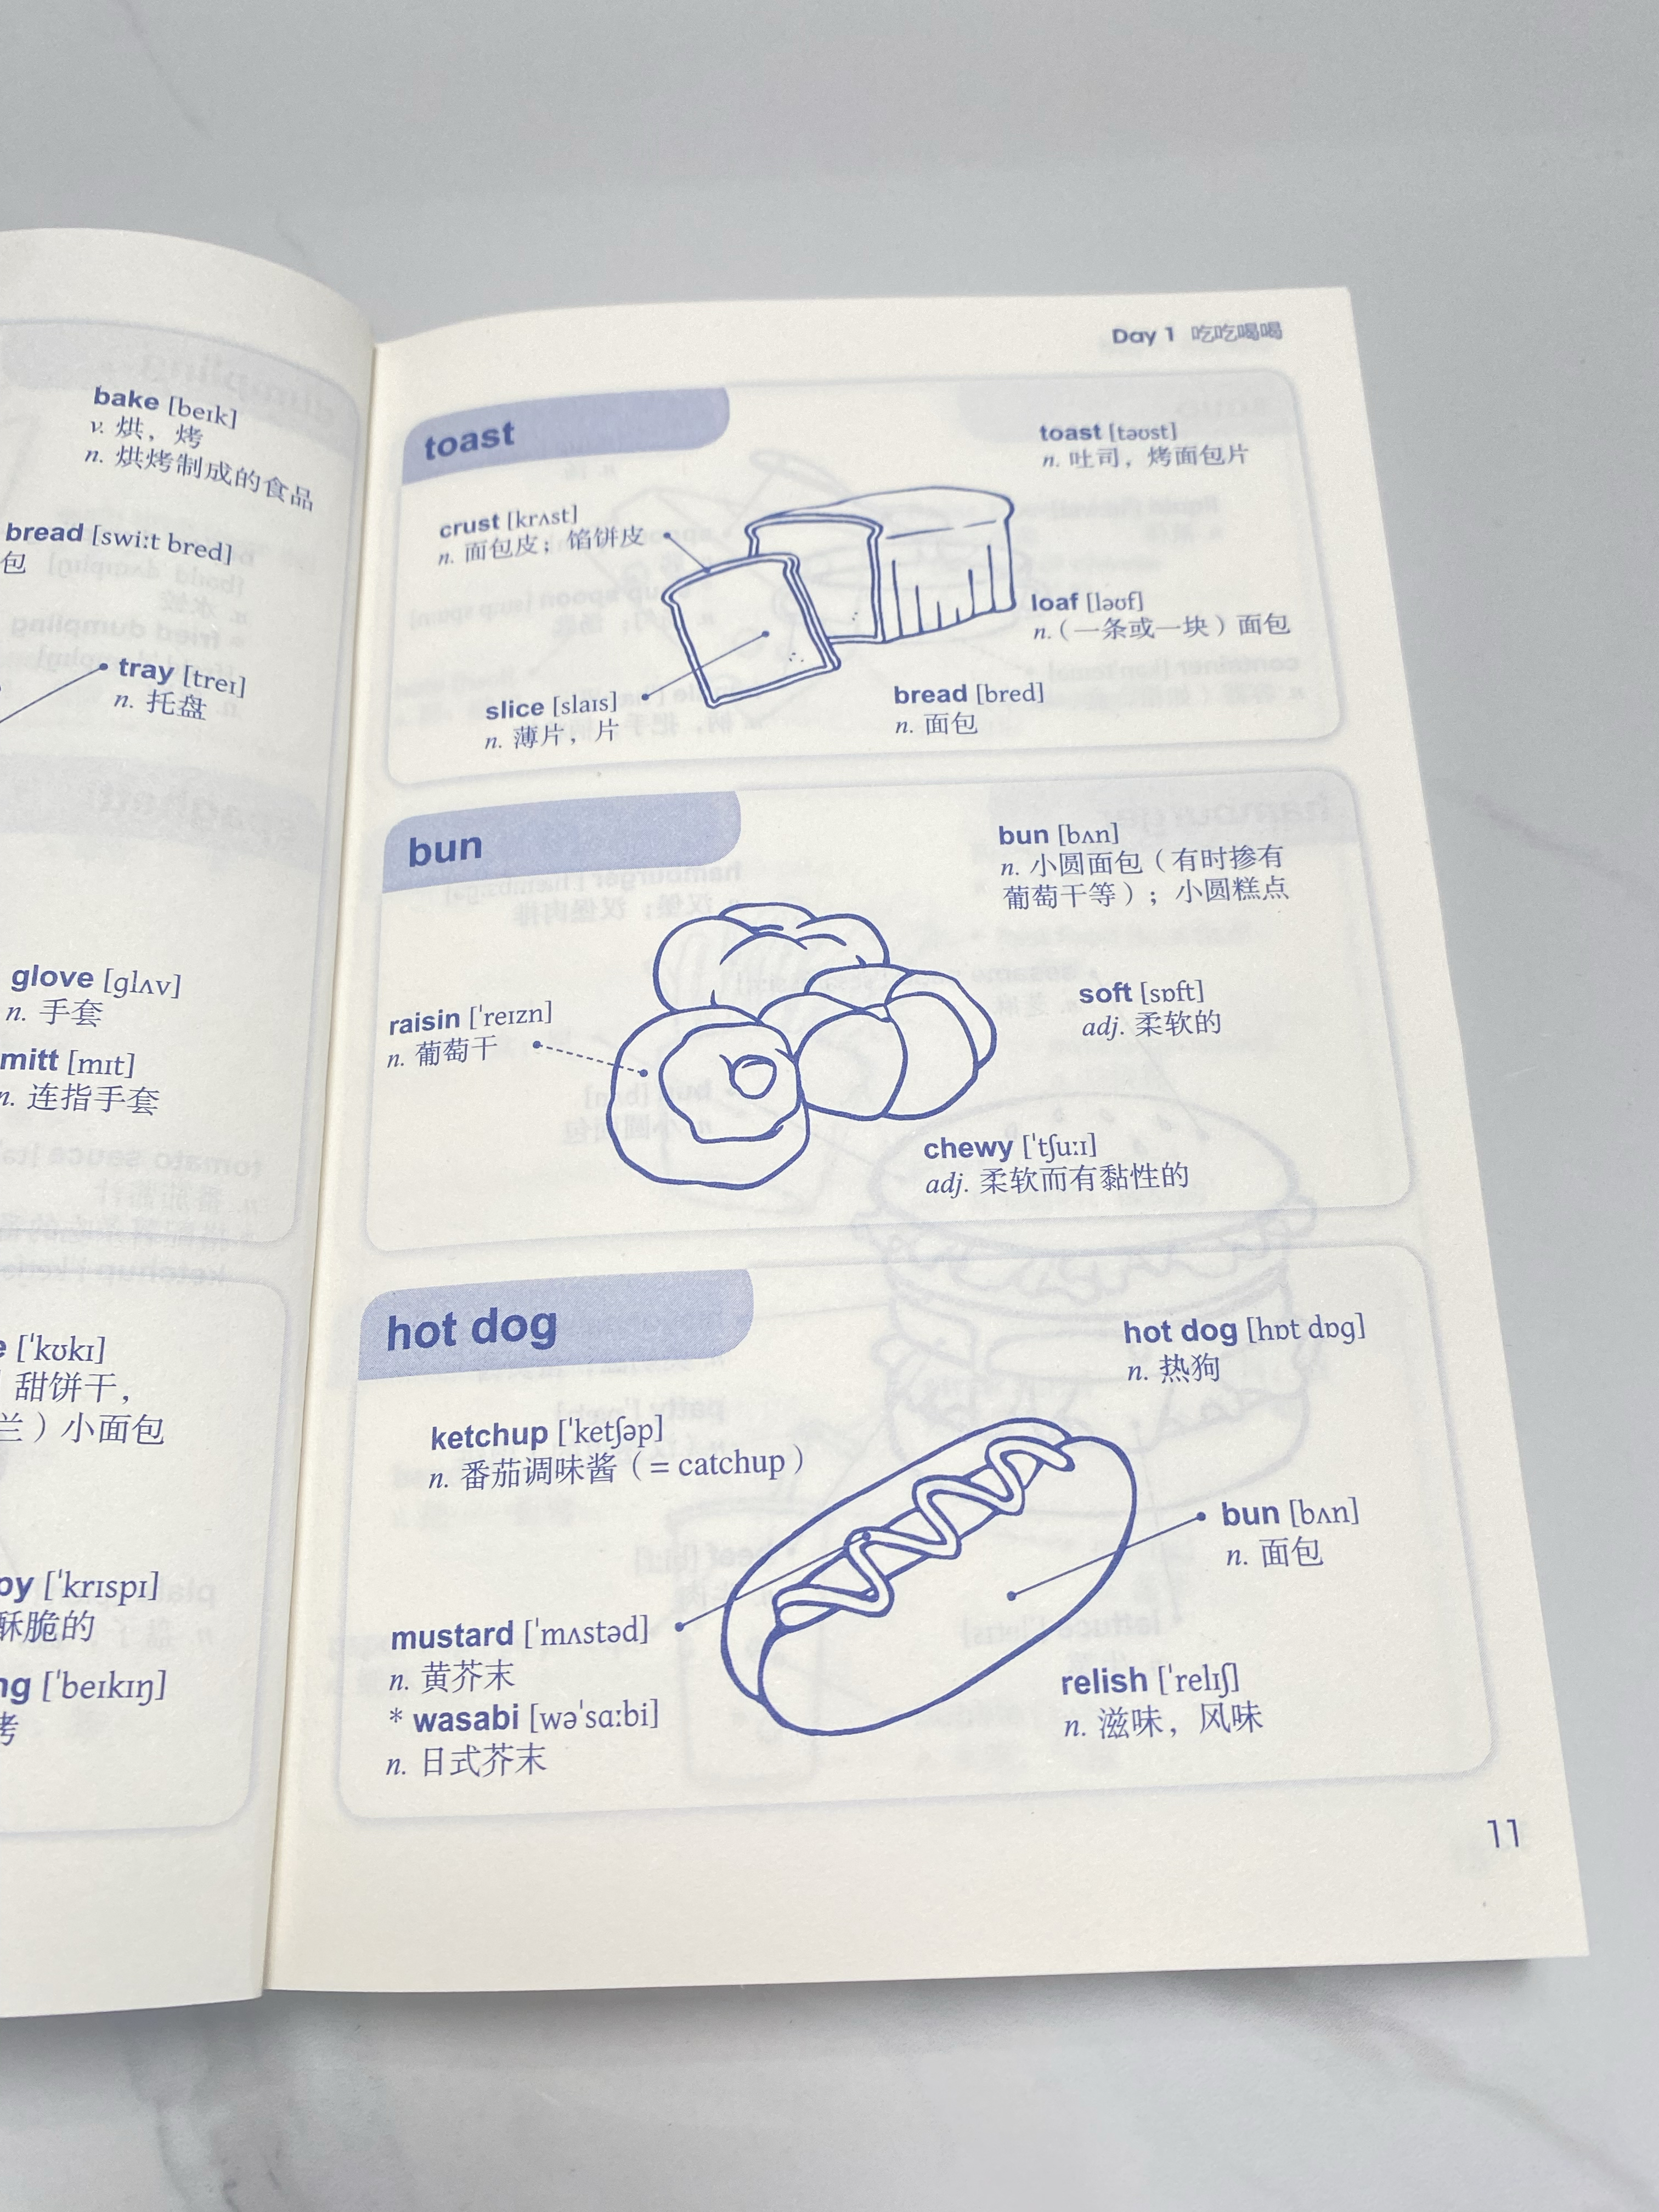 bake [beɪk]
v. 烘，烤
n. 烘烤制成的食品
bread [swiːt bred]
包
tray [treɪ]
n. 托盘
glove [ɡlʌv]
n. 手套
mitt [mɪt]
n. 连指手套
[ˈkʊkɪ]
甜饼干，
兰）小面包
[ˈkrɪspɪ]
酥脆的
[ˈbeɪkɪŋ]
烤
Day 1 吃吃喝喝
toast
toast [təʊst]
n. 吐司，烤面包片
crust [krʌst]
n. 面包皮；馅饼皮
loaf [ləʊf]
n.（一条或一块）面包
slice [slaɪs]
n. 薄片，片
bread [bred]
n. 面包
bun
bun [bʌn]
n. 小圆面包（有时掺有
葡萄干等）；小圆糕点
raisin [ˈreɪzn]
n. 葡萄干
soft [sɒft]
adj. 柔软的
chewy [ˈtʃuːɪ]
adj. 柔软而有黏性的
hot dog
hot dog [hɒt dɒɡ]
n. 热狗
ketchup [ˈketʃəp]
n. 番茄调味酱（= catchup）
bun [bʌn]
n. 面包
mustard [ˈmʌstəd]
n. 黄芥末
* wasabi [wəˈsɑːbi]
n. 日式芥末
relish [ˈrelɪʃ]
n. 滋味，风味
11